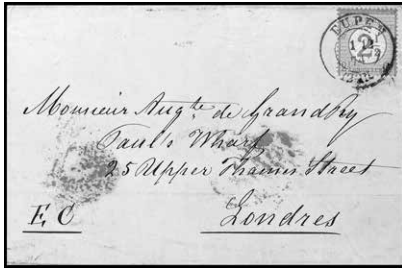 EUPEN
2
Monsieur Aug.te de GrandRy
Paul's Wharf
25 Upper Thames Street
E C
Londres